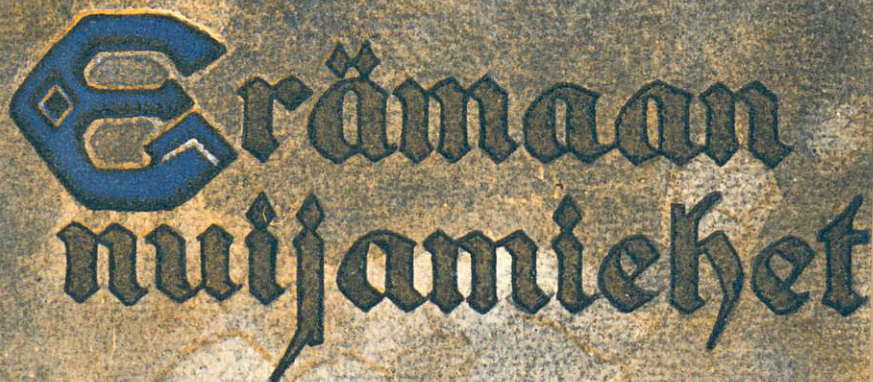 Erämaan
nuijamiehet